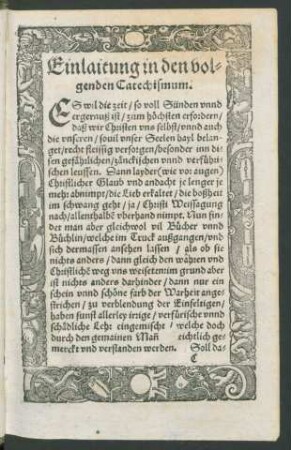 Einlaitung in den vol-
genden Catechismum.
ES wil die zeit / so voll Sünden vnnd
ergernuß ist / zum höchsten erfordern /
daß wir Christen vns selbst / vnnd auch
die vnseren / souil vnser Seelen hayl belan-
get / recht fleissig versorgen / besonder inn di-
sen gefährlichen / zänckischen vnnd verführi-
schen leuffen. Dann layder (wie vor augen)
Christlicher Glaub vnd andacht je lenger je
mehr abnimpt / die Lieb erkaltet / die boßheit
im schwang geht / ja / Christi Weissagung
nach / allenthalbē vberhand nimpt. Nun fin-
det man aber gleichwol vil Bücher vnnd
Büchlin / welche im Truck außgangen / vnd
sich dermassen ansehen lassen / als ob sie
nichts anders / dann gleich den wahren vnd
Christlichē weg vns weiseten: im grund aber
ist nichts anders darhinder / dann nur ein
schein vnnd schöne farb der Warheit ange-
strichen / zu verblendung der Einfeltigen /
haben sunst allerley irrige / verfürische vnnd
schädliche Lehr eingemischt / welche doch
durch den gemainen Mañ leichtlich ge-
merckt vnd verstanden werden. Soll da-